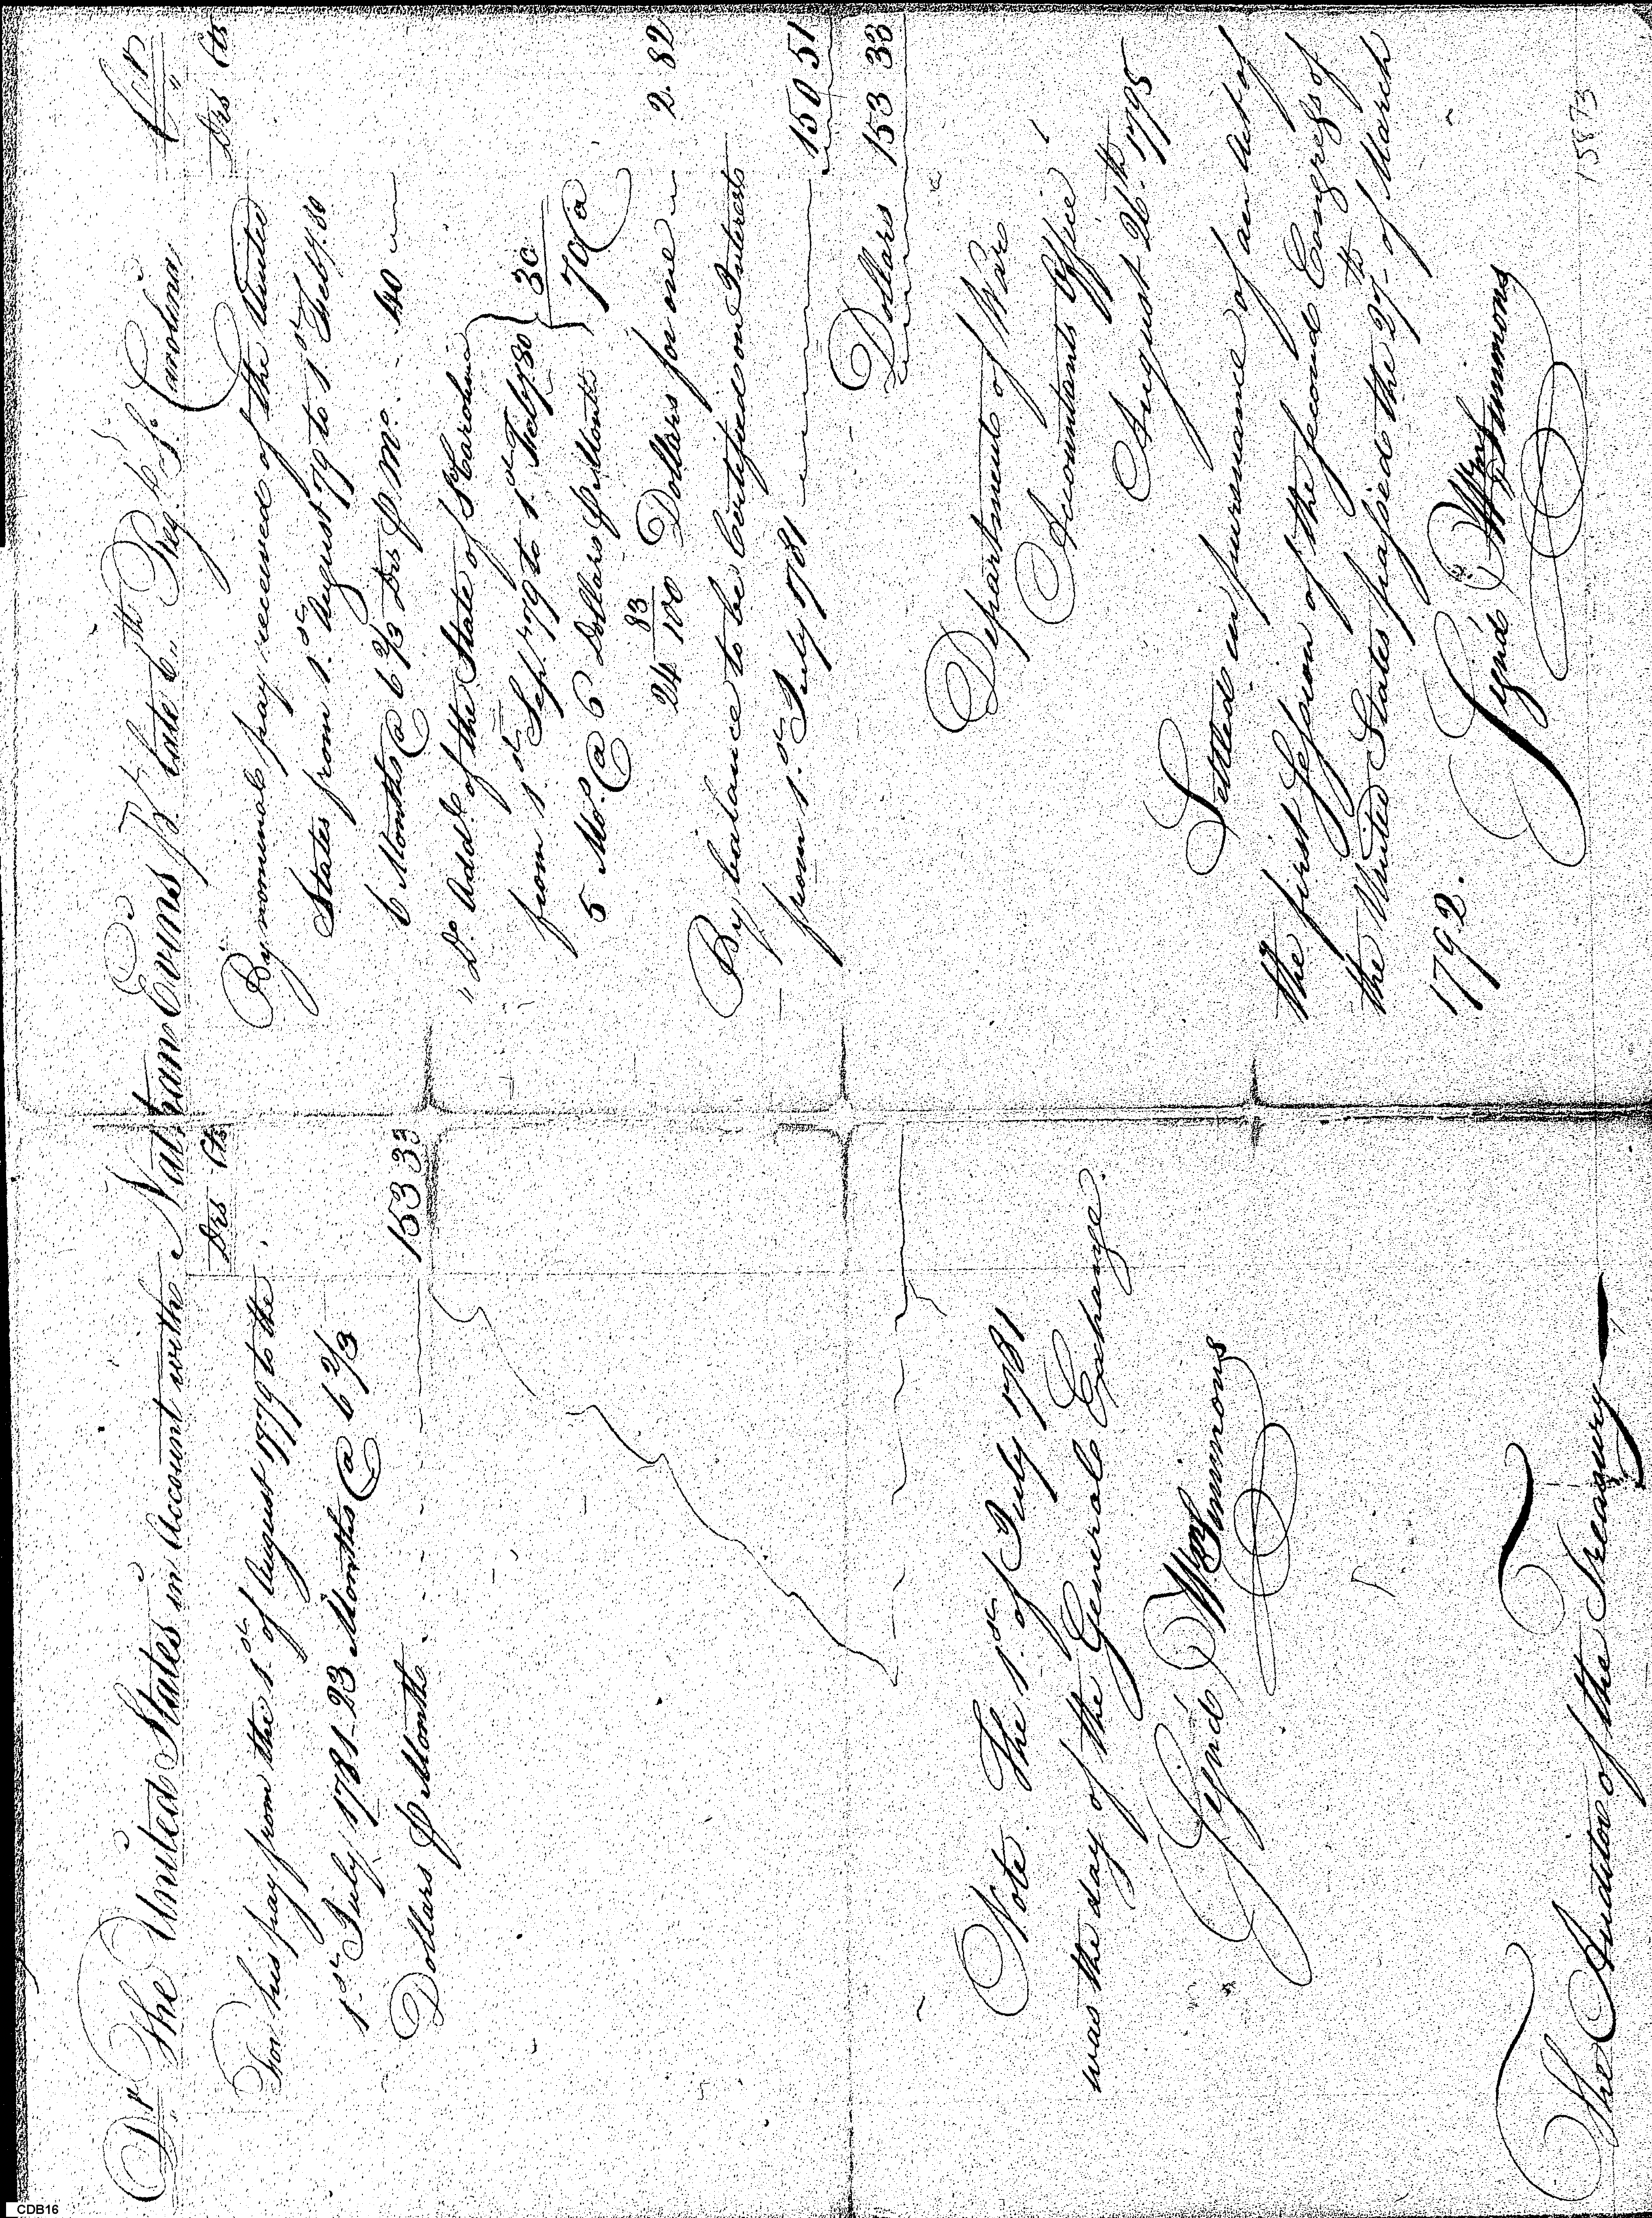 Dr The United States in Account with Nathan Evins Pt. late 6th Reg. So. Carolina Cr
Drs Cts
For his pay from the 1st of August 1779 to the
1st July 1781 - 23 Months @ 6 2/3
Dollars P Month. 153 33
Note. The 1st of July 1781
was the day of the General Exchange.
Signd Wm Simmons
The Auditor of the Treasury
Drs Cts
By nominal pay received of the United
States from 1st August 79 to 1st Feby. 80
6 Months @ 6 2/3 Drs P Mo. 40
" Do Addl of the State of S Carolina
from 1st Sep. 79 to 1st Feby. 80
5 Mos. @ 6 Dollars P Month } 30
70 @
24 83/100 Dollars for one 2. 82
By balance to be Certified on Interest
from 1st July 1781 150 51
Dollars 153 33
Department of War
Accountants Office
August 26th 1795
Settled in pursuance of an Act of
the first Session of the second Congress of
the United States passed the 27th of March
1792.
Signd Wm Simmons
15873
CDB16